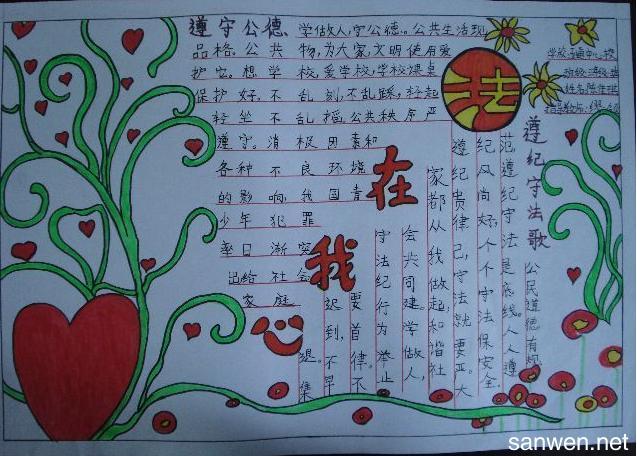 遵守公德、学做人,守公德。公共生活现
品格。公共物,为大家,文明使用爱
护它。想学校,爱学校,学校课桌
保护好。不乱刻,不乱踩,轻起
轻坐不乱搞。公共秩序严
遵守。消极因素和
各种不良环境
的影响,我国青
少年犯罪
率日渐突
出给社会
家庭
法
在
我
心
遵纪守法歌
公民道德有规
范遵纪守法是底线。人人遵
纪风尚好,个个守法保安全。
遵纪贵律己,守法就要严。大
家都从我做起,和谐社
会共同建。学做人,
守法纪行为举止
要首律。不
迟到,不早
退。集
sanwen.net